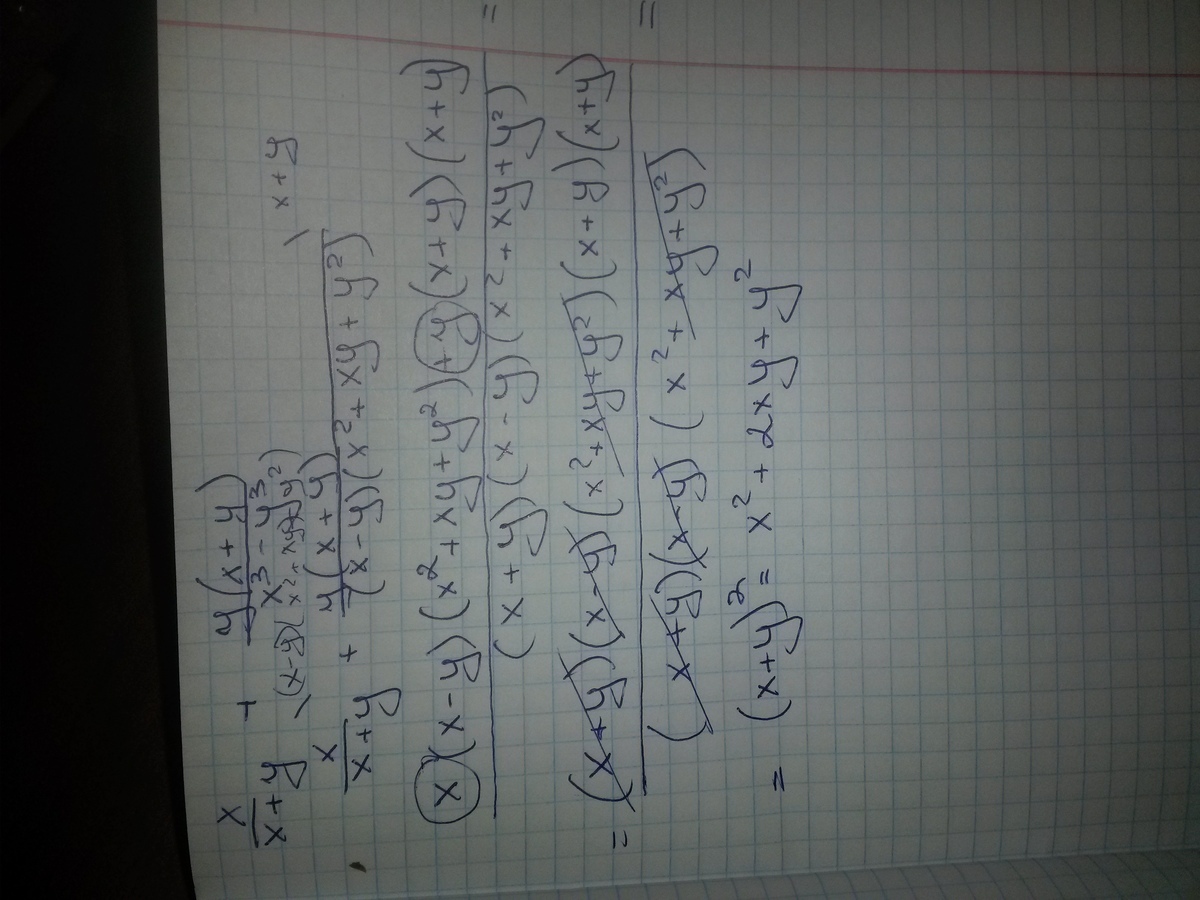 x/(x+y) + y(x+y)/(x³-y³)
\(x-y)(x²+xy+y²) \x+y
x/(x+y) + y(x+y)/((x-y)(x²+xy+y²))
x(x-y)(x²+xy+y²)+y(x+y)(x+y)/((x+y)(x-y)(x²+xy+y²)) =
= (x+y)(x-y)(x²+xy+y²)(x+y)(x+y)/((x+y)(x-y)(x²+xy+y²)) =
= (x+y)² = x²+2xy+y²